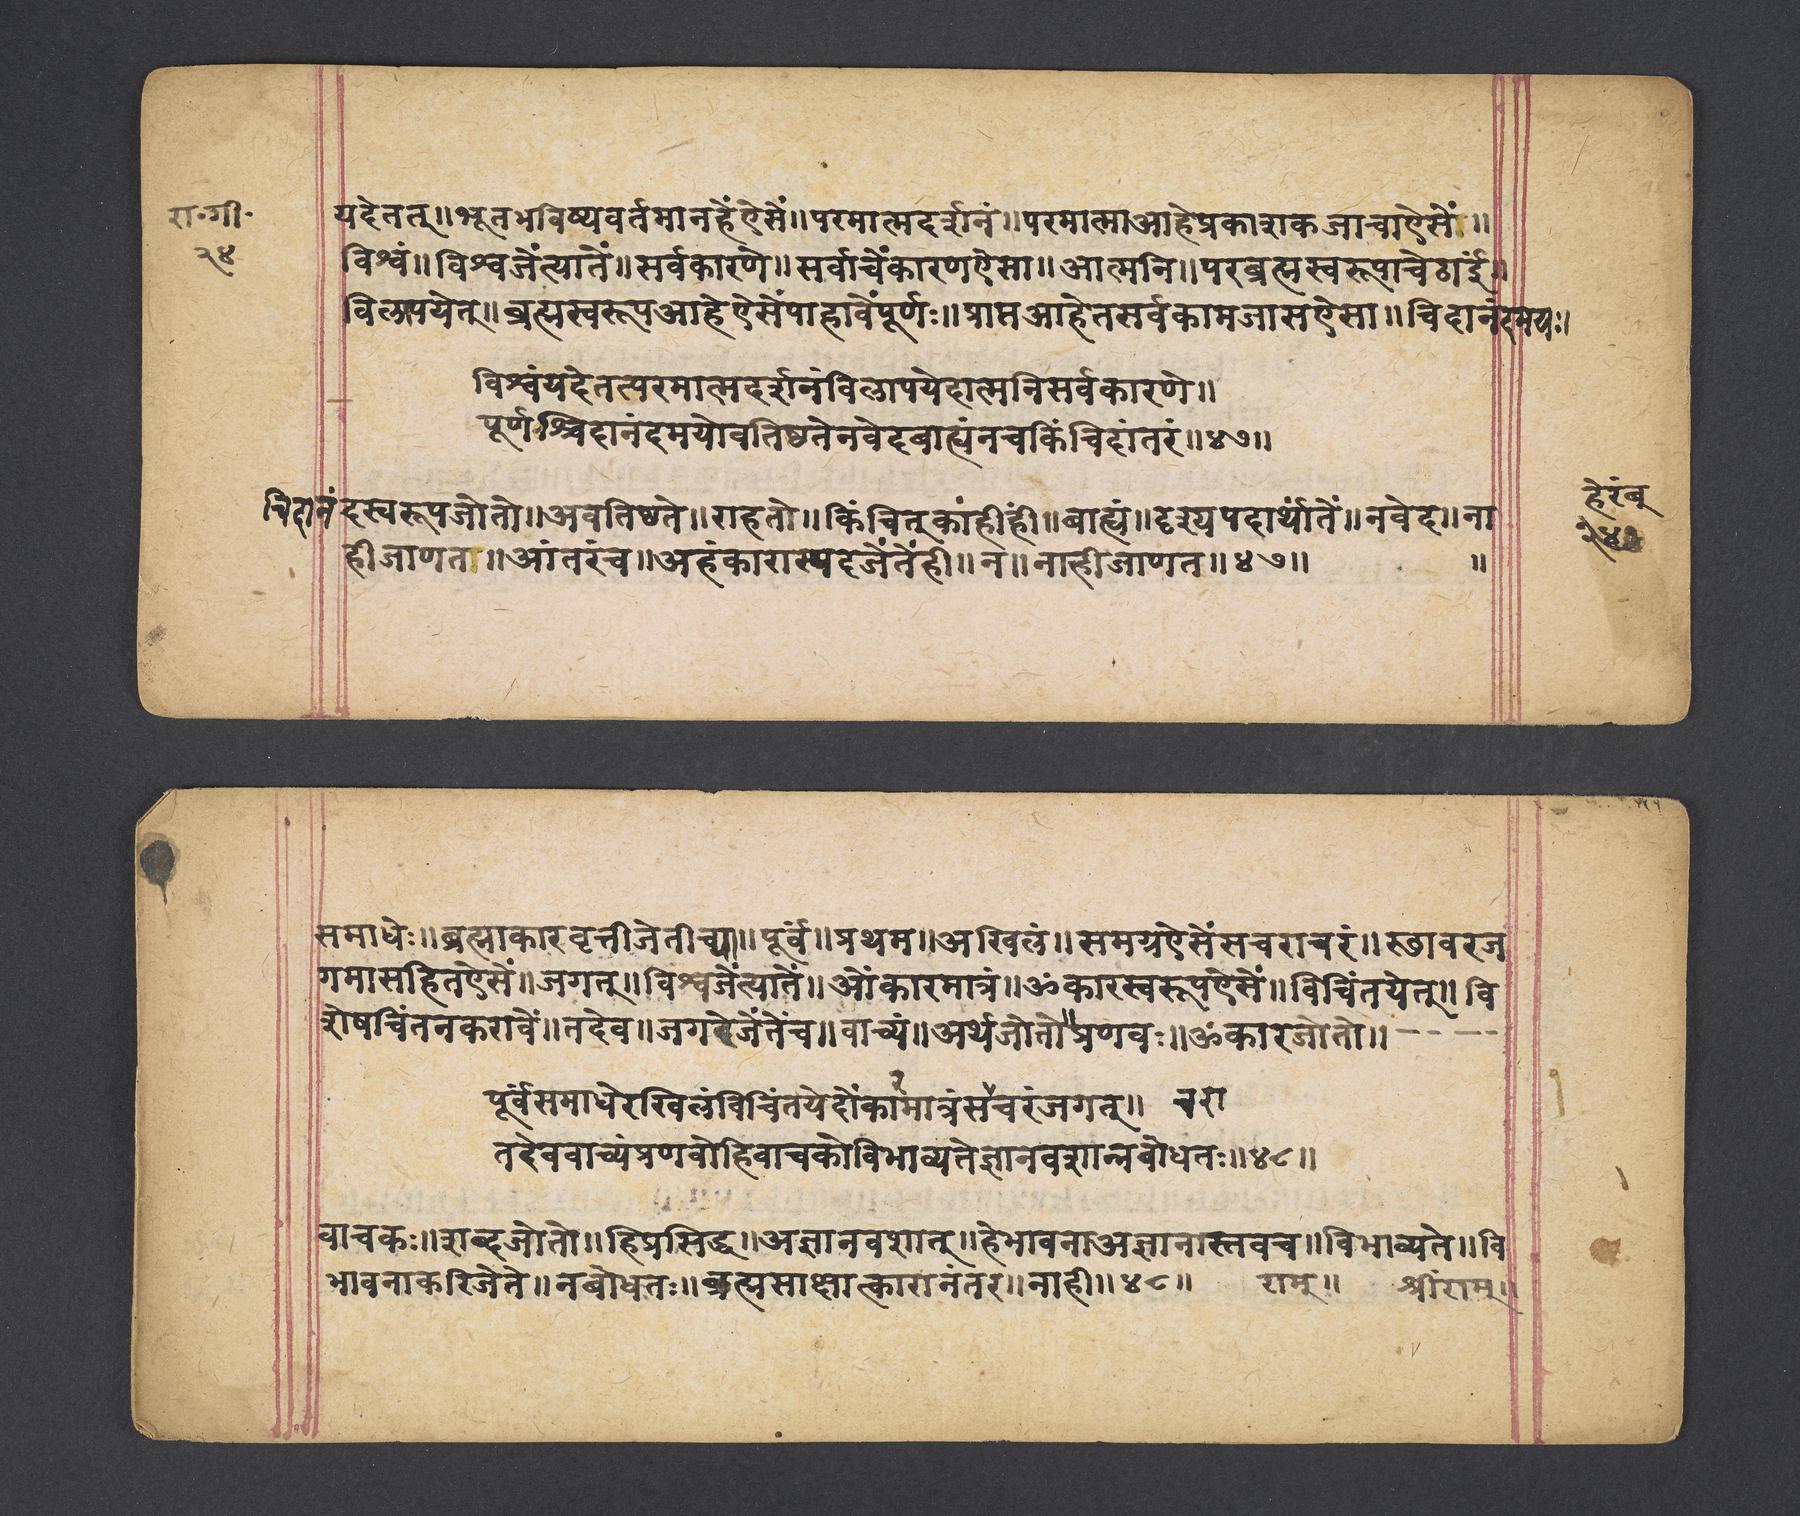 रा॰गी॰
२४
यदेतत्॥भूतभविष्यवर्तमानहेंऐसें॥परमात्मदर्शनं॥परमात्माआहेप्रकाशकजाचाऐसें॥
विश्वं॥विश्वजेंत्यातें॥सर्वकारणे॥सर्वाचेंकारणऐसा॥आत्मनि॥परब्रह्मस्वरूपाचेठाईं॥
विलापयेत्॥ब्रह्मस्वरूपआहेऐसेंपाहावेंपूर्णः॥प्राप्तआहेतसर्वकामजासऐसा॥चिदानंदमयः।
विश्वंयदेतत्परमात्मदर्शनंविलापयेदात्मनिसर्वकारणे॥
पूर्णश्चिदानंदमयोवतिष्ठतेनवेदबाह्यंनचकिंचिदांतरं॥४७॥
चिदानंदस्वरूपजोतो॥अवतिष्ठते॥राहतो॥किंचित्कांहींही॥बाह्यं॥दृश्यपदार्थातें॥नवेद॥ना
हीजाणता॥आंतरंच॥अहंकारास्पदजेंतेंही॥न॥नाहीजाणत॥४७॥ ॥
हेरंबू
समाधेः॥ब्रह्माकारवृत्तीजेतीच्या॥पूर्वं॥प्रथम॥अखिलं॥समग्रऐसेंसचराचरं॥स्छावरज
गमासहितऐसें॥जगत्॥विश्वजेंत्यातें॥ओंकारमात्रं॥ॐकारस्वरूपऐसें॥विचिंतयेत्॥वि
शेषचिंतनकरावें॥तदेव॥जगदेजेंतेंच॥वाच्यं॥अर्थजोतो॥प्रणवः॥ॐकारजोतो॥
पूर्वंसमाधेरखिलंविचिंतयेदोंकारमात्रंसचरंजगत्॥ चरा
तदेववाच्यंप्रणवोहिवाचकोविभाव्यतेज्ञानवशान्नबोधतः॥४८॥
वाचकः॥शब्दजोतो॥हिप्रसिद्ध॥अज्ञानवशात्॥हेभावनाअज्ञानास्तवच॥विभाव्यते॥वि
भावनाकरिजेते॥नबोधतः॥ब्रह्मसाक्षात्कारानंतर॥नाही॥४८॥ रामू॥ श्रीरामू॥